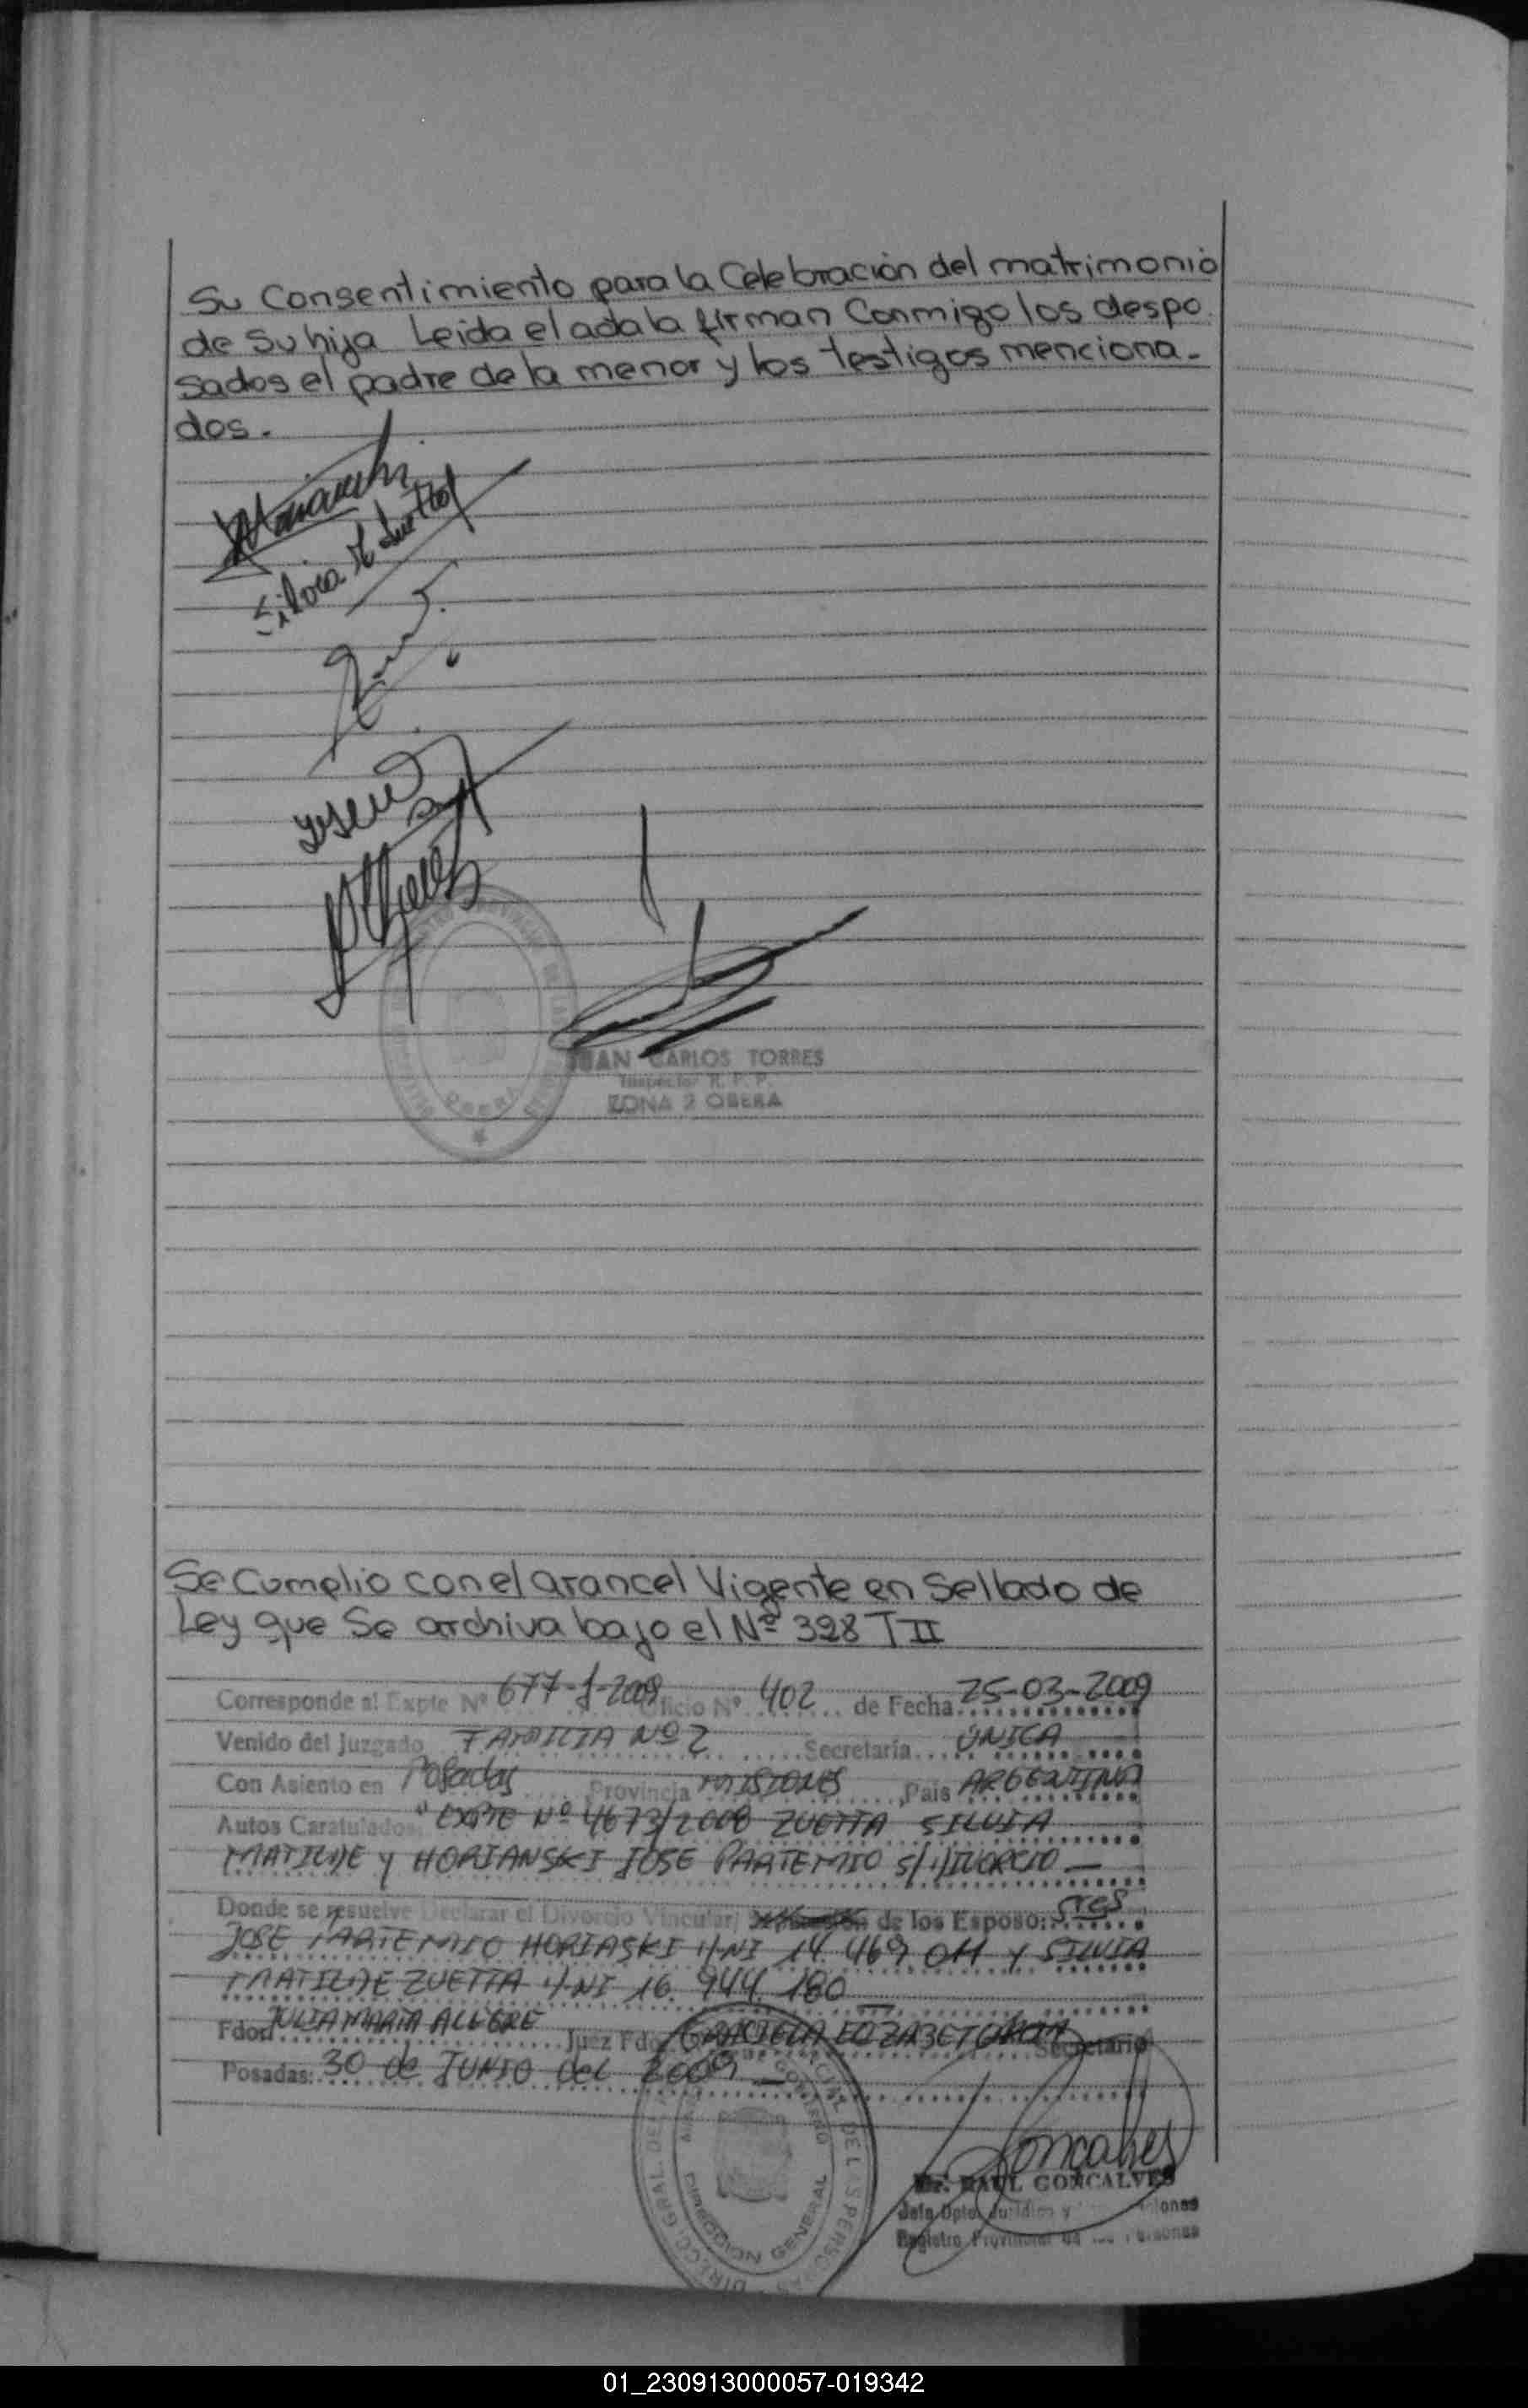 Su Consentimiento para la Celebración del matrimonio
de su hija Leida el acta la firman Conmigo los despo
sados el padre de la menor y los testigos menciona-
dos.
JUAN CARLOS TORRES
Inspector R. P. P.
ZONA 2 OBERA
Se Cumplio con el arancel Vigente en Sellado de
Ley que Se archiva bajo el Nº 328 T II
Corresponde al Expte Nº 677-J-2009 Oficio Nº 402 de Fecha 25-03-2009
Venido del Juzgado FAMILIA Nº 2 Secretaría ÚNICA
Con Asiento en Posadas Provincia MISIONES País ARGENTINA
Autos Caratulados: "EXPTE Nº 4673/2008 ZUETTA SILVIA
MATILDE y HORIANSKI JOSE PARTEMIO S/DIVORCIO
Donde se resuelve Declarar el Divorcio Vincular/ de los Esposo: sres
JOSE PARTEMIO HORIASKI DNI 14.469.011 Y SILVIA
MATILDE ZUETTA DNI 16.944.180
Fdor. JULIA MARIA ALEGRE Juez Fdo. GRACIELA ELIZABET Secretario
Posadas: 30 de JUNIO del 2009
DIRECCION GENERAL
Goncalves
Dr. RAUL GONCALVES
Jefe Dpto. Jurídico y
Registro Provincial de las Personas
01_230913000057-019342